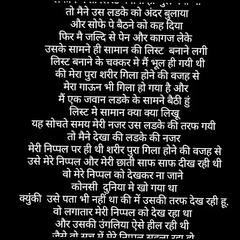 तो मैने उस लडके को अंदर बुलाया
और सोफे पे बैठने को कह दिया
फिर मै जल्दि से पेन और कागज लेके
उसके सामने ही सामान की लिस्ट बनाने लगी
लिस्ट बनाने के चक्कर मे मैं भूल ही गयी थी
की मेरा पुरा शरीर गिला होने की वजह से
मेरा गाऊन भी गिला हो गया है और
मैं एक जवान लडके के सामने बैठी हुं
लिस्ट मे सामान क्या क्या लिखू
यह सोचते समय मेरी नजर उस लडके की तरफ गयी
तो मैने देखा की लडके की नजर
मेरी निप्पल पर ही थी शरीर पुरा गिला होने की वजह से
उसे मेरे निप्पल और मेरी छाती साफ साफ दीख रही थी
वो मेरे निप्पल को देखकर ना जाने
कोनसी दुनिया मे खो गया था
क्युंकी उसे पता भी नहीं था की में उसकी तरफ देख रही हू
वो लगातार मेरी निप्पल को देख रहा था
और उसकी उंगलिया ऐसे हील रही थी